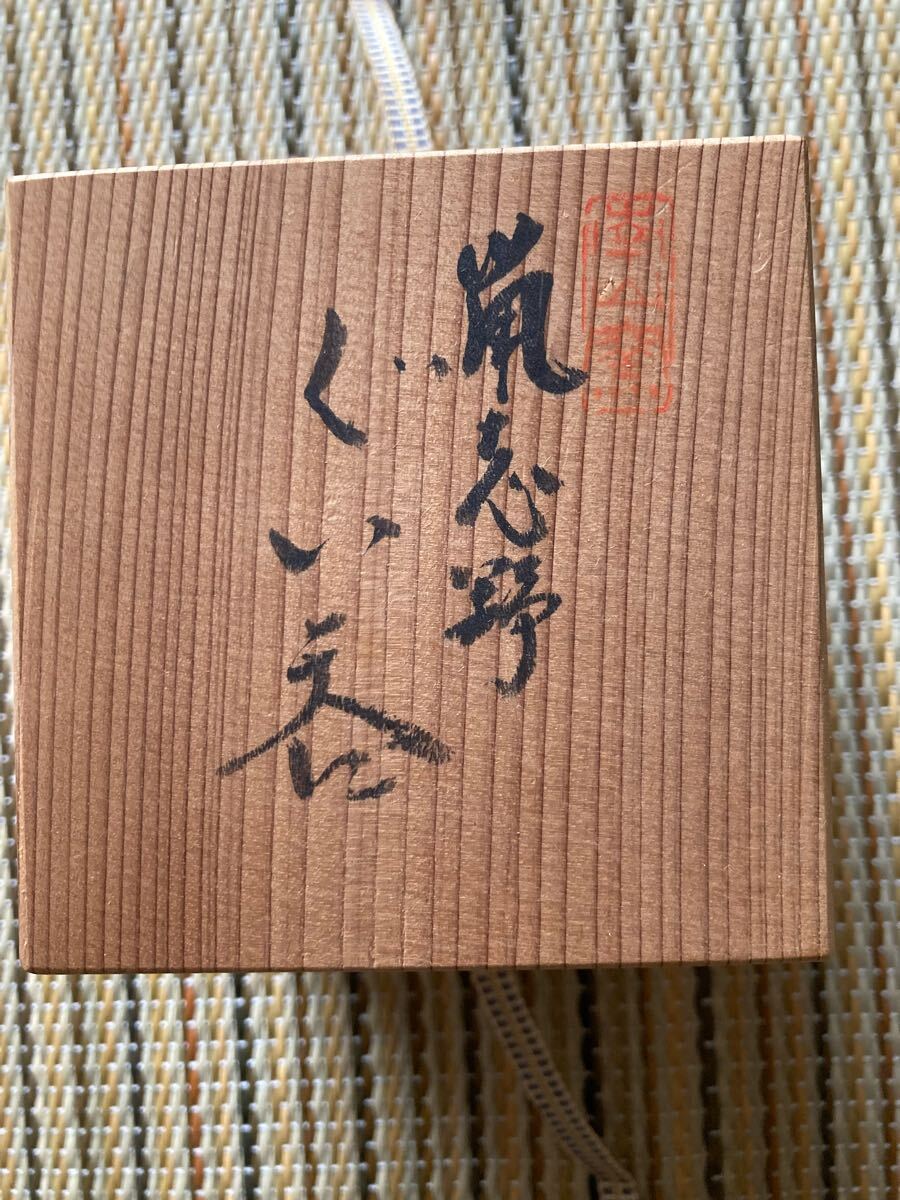 鼠志野
ぐい呑